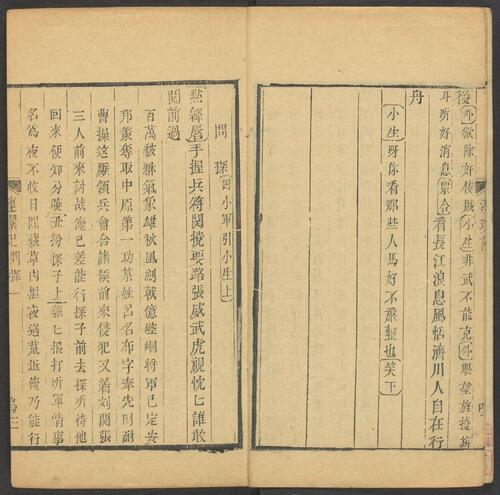 後(外)欲除奸佞賊(小生)非武不能克(外)眼望旌捷旂
耳所好消息(眾合)看長江浪息風恬濟川人自在行
舟
(小生)呀你看那些人馬好不飛整也(笑下)
問探(四小軍引小生上)
點絳唇手握兵符關攬要路張威武虎視忱匕誰敢
關前過
百萬貔貅氣象雄秋風劍戟億
將軍已定安
邦策奪取中原第一功某姓呂名布字奉先因耐
曹操這厮領兵會合諸候前來侵犯又着劉關張
三人前來討戰俺已差能行探子前去探听待他
回來便知分曉(丑扮探子上)報匕
打听軍情事
名為夜不收日間藏草內黑夜過荒坵俺乃能行
連環記問探